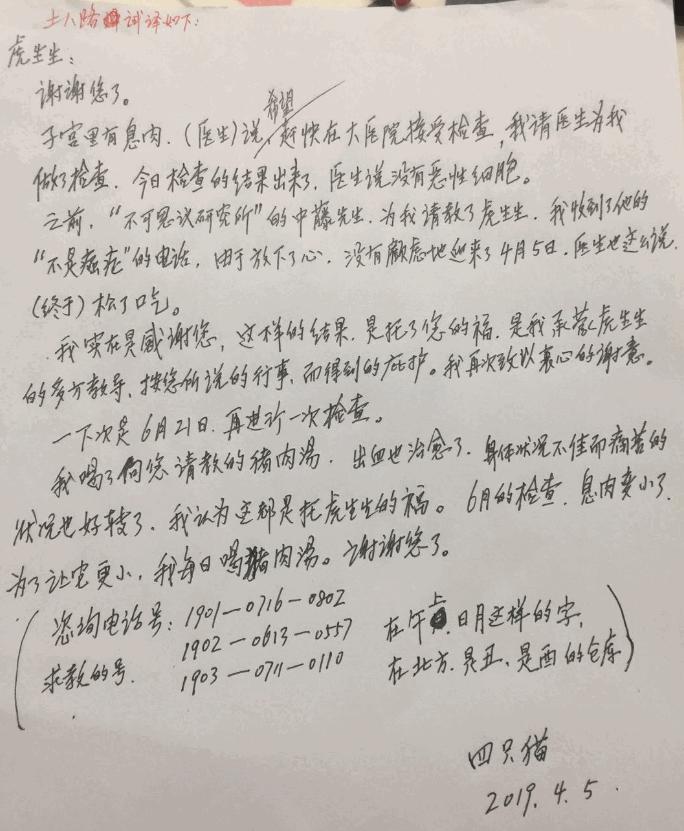 土人路试译如下：
虎生生：
谢谢您了。
希望
子宫里有息肉．(医生)说，赶快在大医院接受检查，我请医生为我
做了检查．今日检查的结果出来了．医生说没有恶性细胞。
之前，“不可思议研究所”的中藤先生．为我请教了虎生生．我收到了他的
“不是癌症”的电话，由于放下了心．没有顾虑地迎来了4月5日．医生也这么说．
(终于)松了口气。
我实在是感谢您，这样的结果．是托了您的福．是我承蒙虎生生
的多方教导、按您所说的行事、而得到的庇护。我再次致以衷心的谢意。
一下次是6月21日．再进行一次检查。
我喝了向您请教的猪肉汤．出血也治愈了．身体状况不佳而痛苦的
状况也好转了．我认为这都是托虎生生的福。6月的检查．息肉变小了．
为了让它更小，我每日喝猪肉汤。谢谢您了。
咨询电话号：1901—0716—0802
1902—0613—0557
求教的号．1903—0711—0110
在午上．日月这样的字，
在北方．是丑、是酉的仓库
四只猫
2019.4.5.